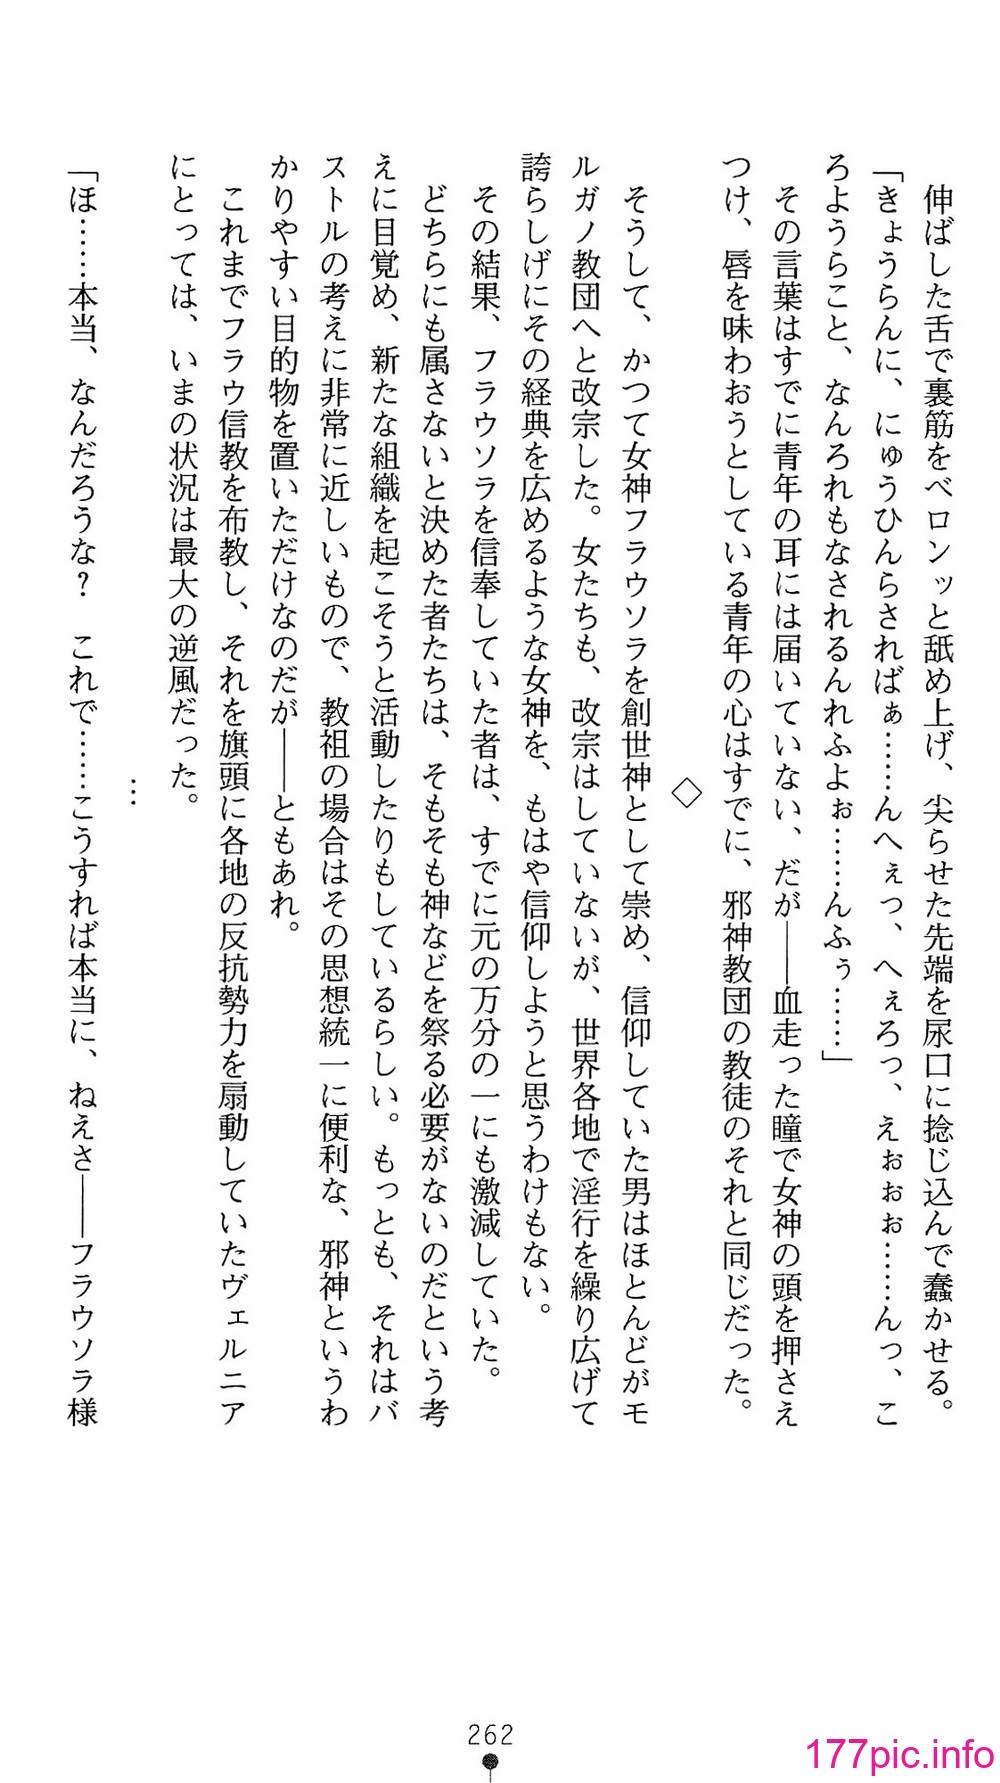 伸ばした舌で裏筋をベロンッと舐め上げ、尖らせた先端を尿口に捻じ込んで蠢かせる。
「きょうらんに、にゅうひんらさればぁ……んへぇっ、へぇろっ、えぉぉぉ……んっ、こ
ろようらこと、なんろれもなされるんれふよぉ……んふぅ……」
　その言葉はすでに青年の耳には届いていない、だが――血走った瞳で女神の頭を押さえ
つけ、唇を味わおうとしている青年の心はすでに、邪神教団の教徒のそれと同じだった。
◇
　そうして、かつて女神フラウソラを創世神として崇め、信仰していた男はほとんどがモ
ルガノ教団へと改宗した。女たちも、改宗はしていないが、世界各地で淫行を繰り広げて
誇らしげにその経典を広めるような女神を、もはや信仰しようと思うわけもない。
　その結果、フラウソラを信奉していた者は、すでに元の万分の一にも激減していた。
　どちらにも属さないと決めた者たちは、そもそも神などを祭る必要がないのだという考
えに目覚め、新たな組織を起こそうと活動したりもしているらしい。もっとも、それはバ
ストルの考えに非常に近しいもので、教祖の場合はその思想統一に便利な、邪神というわ
かりやすい目的物を置いただけなのだが――ともあれ。
　これまでフラウ信教を布教し、それを旗頭に各地の反抗勢力を扇動していたヴェルニア
にとっては、いまの状況は最大の逆風だった。
…
「ほ……本当、なんだろうな？　これで……こうすれば本当に、ねえさ――フラウソラ様
262
177pic.info